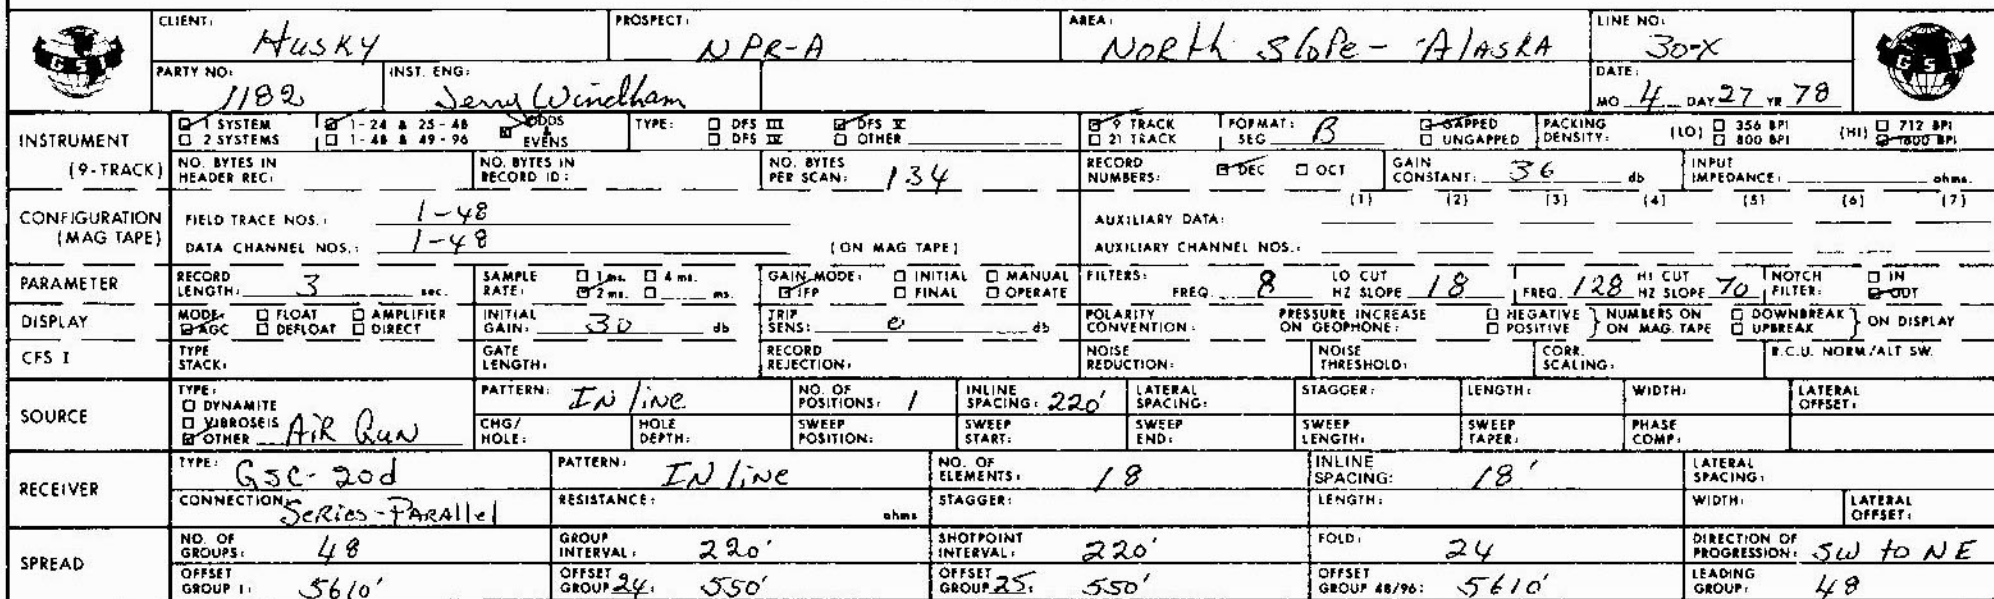 CLIENT: Husky PROSPECT: NPR-A AREA: North Slope - Alaska LINE NO: 30-X
GSI
PARTY NO: 1182 INST. ENG: Jerry Windham DATE: MO 4 DAY 27 YR 78
INSTRUMENT (9-TRACK)
1 SYSTEM 1-24 & 25-48 ODDS & EVENS TYPE: DFS III DFS V 9 TRACK FORMAT: SEG B GAPPED PACKING DENSITY: (LO) 356 BPI (HI) 712 BPI
2 SYSTEMS 1-48 & 49-96 DFS IV OTHER 21 TRACK UNGAPPED 800 BPI 1600 BPI
NO. BYTES IN HEADER REC: NO. BYTES IN RECORD ID: NO. BYTES PER SCAN: 134 RECORD NUMBERS: DEC OCT GAIN CONSTANT: 36 db INPUT IMPEDANCE: ohms.
CONFIGURATION (MAG TAPE)
FIELD TRACE NOS.: 1-48 AUXILIARY DATA: (1) (2) (3) (4) (5) (6) (7)
DATA CHANNEL NOS.: 1-48 (ON MAG TAPE) AUXILIARY CHANNEL NOS.:
PARAMETER RECORD LENGTH: 3 sec. SAMPLE RATE: 1 ms. 4 ms. 2 ms. ms. GAIN MODE: INITIAL MANUAL IFP FINAL OPERATE FILTERS: FREQ. 8 LO CUT HZ SLOPE 18 FREQ. 128 HI CUT HZ SLOPE 70 NOTCH FILTER: IN OUT
DISPLAY MODE: FLOAT AMPLIFIER AGC DEFLOAT DIRECT INITIAL GAIN: 30 db TRIP SENS: 0 db POLARITY CONVENTION: PRESSURE INCREASE ON GEOPHONE: NEGATIVE POSITIVE } NUMBERS ON ON MAG. TAPE DOWNBREAK UPBREAK } ON DISPLAY
CFS I TYPE STACK: GATE LENGTH: RECORD REJECTION: NOISE REDUCTION: NOISE THRESHOLD: CORR. SCALING: R.C.U. NORM/ALT SW.
SOURCE
TYPE: DYNAMITE VIBROSEIS OTHER Air Gun PATTERN: In line NO. OF POSITIONS: 1 INLINE SPACING: 220' LATERAL SPACING: STAGGER: LENGTH: WIDTH: LATERAL OFFSET:
CHG/HOLE: HOLE DEPTH: SWEEP POSITION: SWEEP START: SWEEP END: SWEEP LENGTH: SWEEP TAPER: PHASE COMP:
RECEIVER
TYPE: GSC-20d PATTERN: In line NO. OF ELEMENTS: 18 INLINE SPACING: 18' LATERAL SPACING:
CONNECTION: Series-Parallel RESISTANCE: ohms STAGGER: LENGTH: WIDTH: LATERAL OFFSET:
SPREAD
NO. OF GROUPS: 48 GROUP INTERVAL: 220' SHOTPOINT INTERVAL: 220' FOLD: 24 DIRECTION OF PROGRESSION: SW to NE
OFFSET GROUP 1: 5610' OFFSET GROUP 24: 550' OFFSET GROUP 25: 550' OFFSET GROUP 48/96: 5610' LEADING GROUP: 48